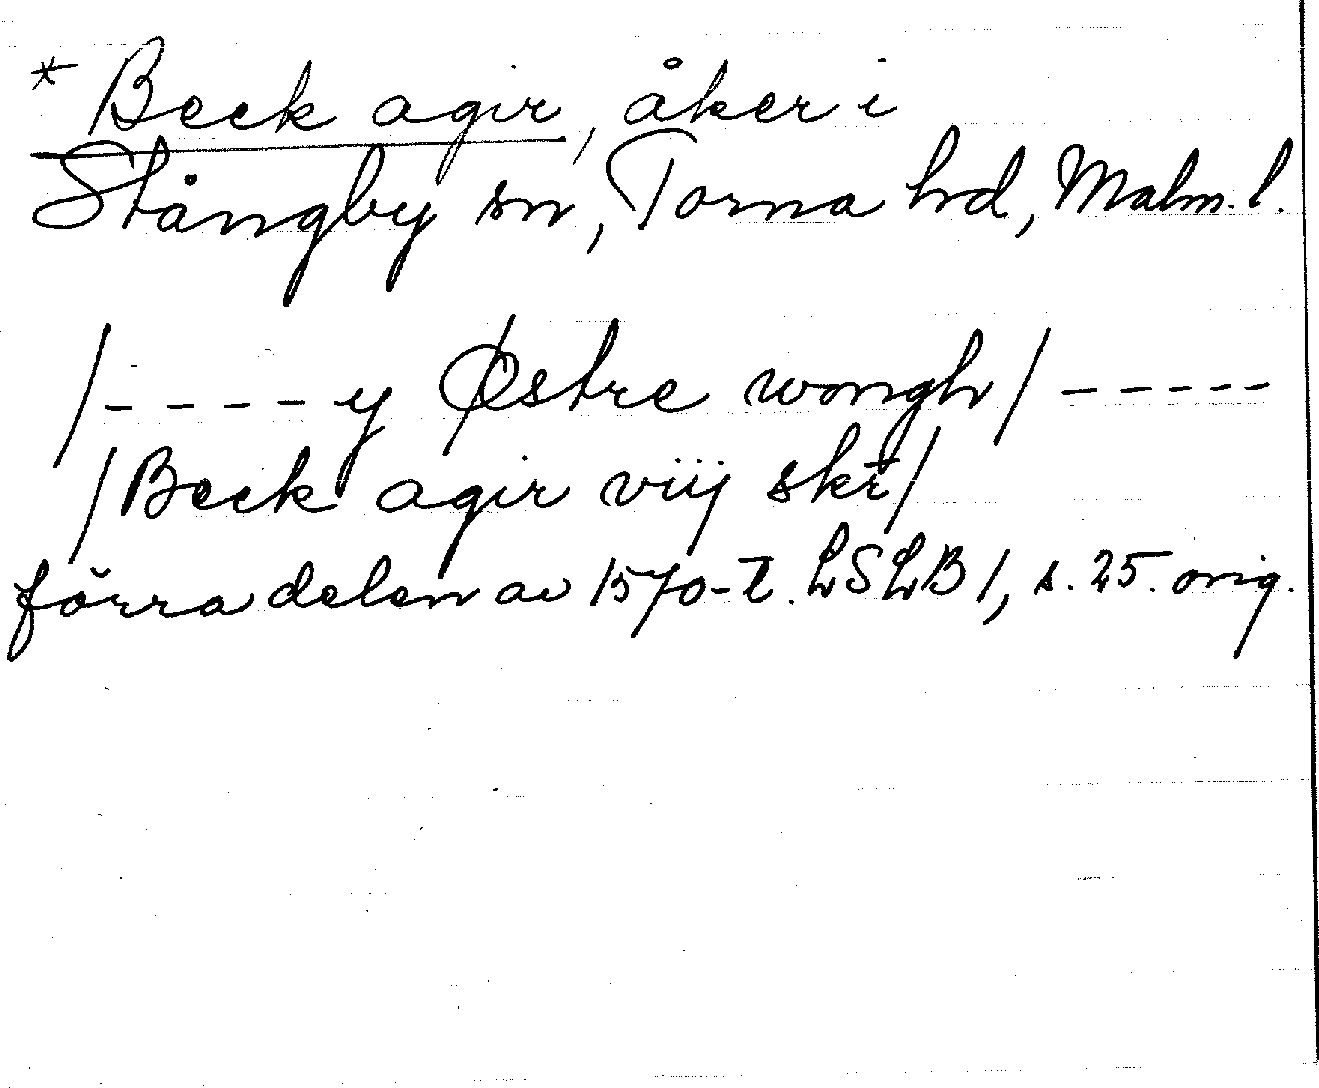 * Beck agir, åker i
Stångby sn, Torna hd, Malm. l.
/- - - - y Østre wongh/ - - - - -
/Beck agir viij skr̄/
förra delen av 1570-t. LSLB 1, s. 25. orig.